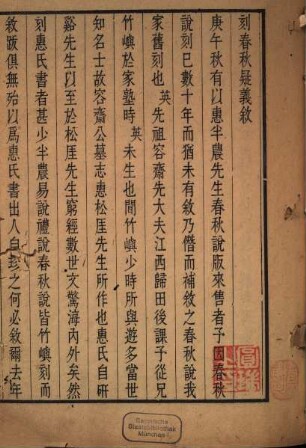 刻春秋疑義敘
庚午秋有以惠半農先生春秋說版來售者予因春秋
說刻已數十年而猶未有敘乃僭而補敘之春秋說我
家舊刻也英先祖容齋先大夫江西歸田後課子從兄
竹嶼於家塾時英未生也間竹嶼少時所與遊多當世
知名士故容齋公墓志惠松厓先生所作也惠氏自硏
谿先生以至於松厓先生窮經數世文驚海內外矣然
刻惠氏書者甚少半農易說禮說春秋說皆竹嶼刻而
敘跋俱無殆以爲惠氏書出人自珍之何必敘爾去年
Bayerische
Staatsbibliothek
München